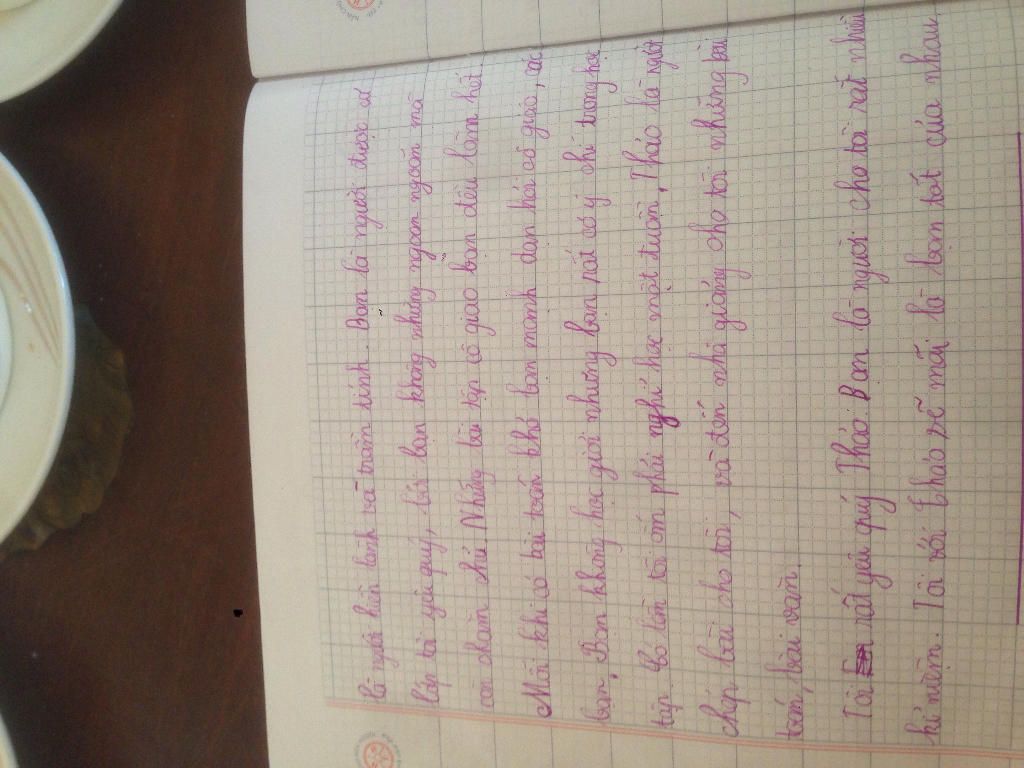 là người hiền lành và trầm tính. Bạn là người được cả
lớp tôi yêu quý, bởi bạn không những ngoan ngoãn mà
còn chăm chỉ. Những bài tập cô giao bạn đều làm hết
Mỗi khi có bài toán khó bạn mạnh dạn hỏi cô giáo, các
bạn. Bạn không học giỏi nhưng bạn rất có ý chí trong học
tập. Có lần tôi ốm phải nghỉ học một tuần, Thảo là người
chép bài cho tôi, và đến nhà giảng cho tôi những bài
toán, bài văn.
Tôi rất yêu quý Thảo. Bạn là người cho tôi rất nhiều
kỉ niệm. Tôi với Thảo sẽ mãi là bạn tốt của nhau.